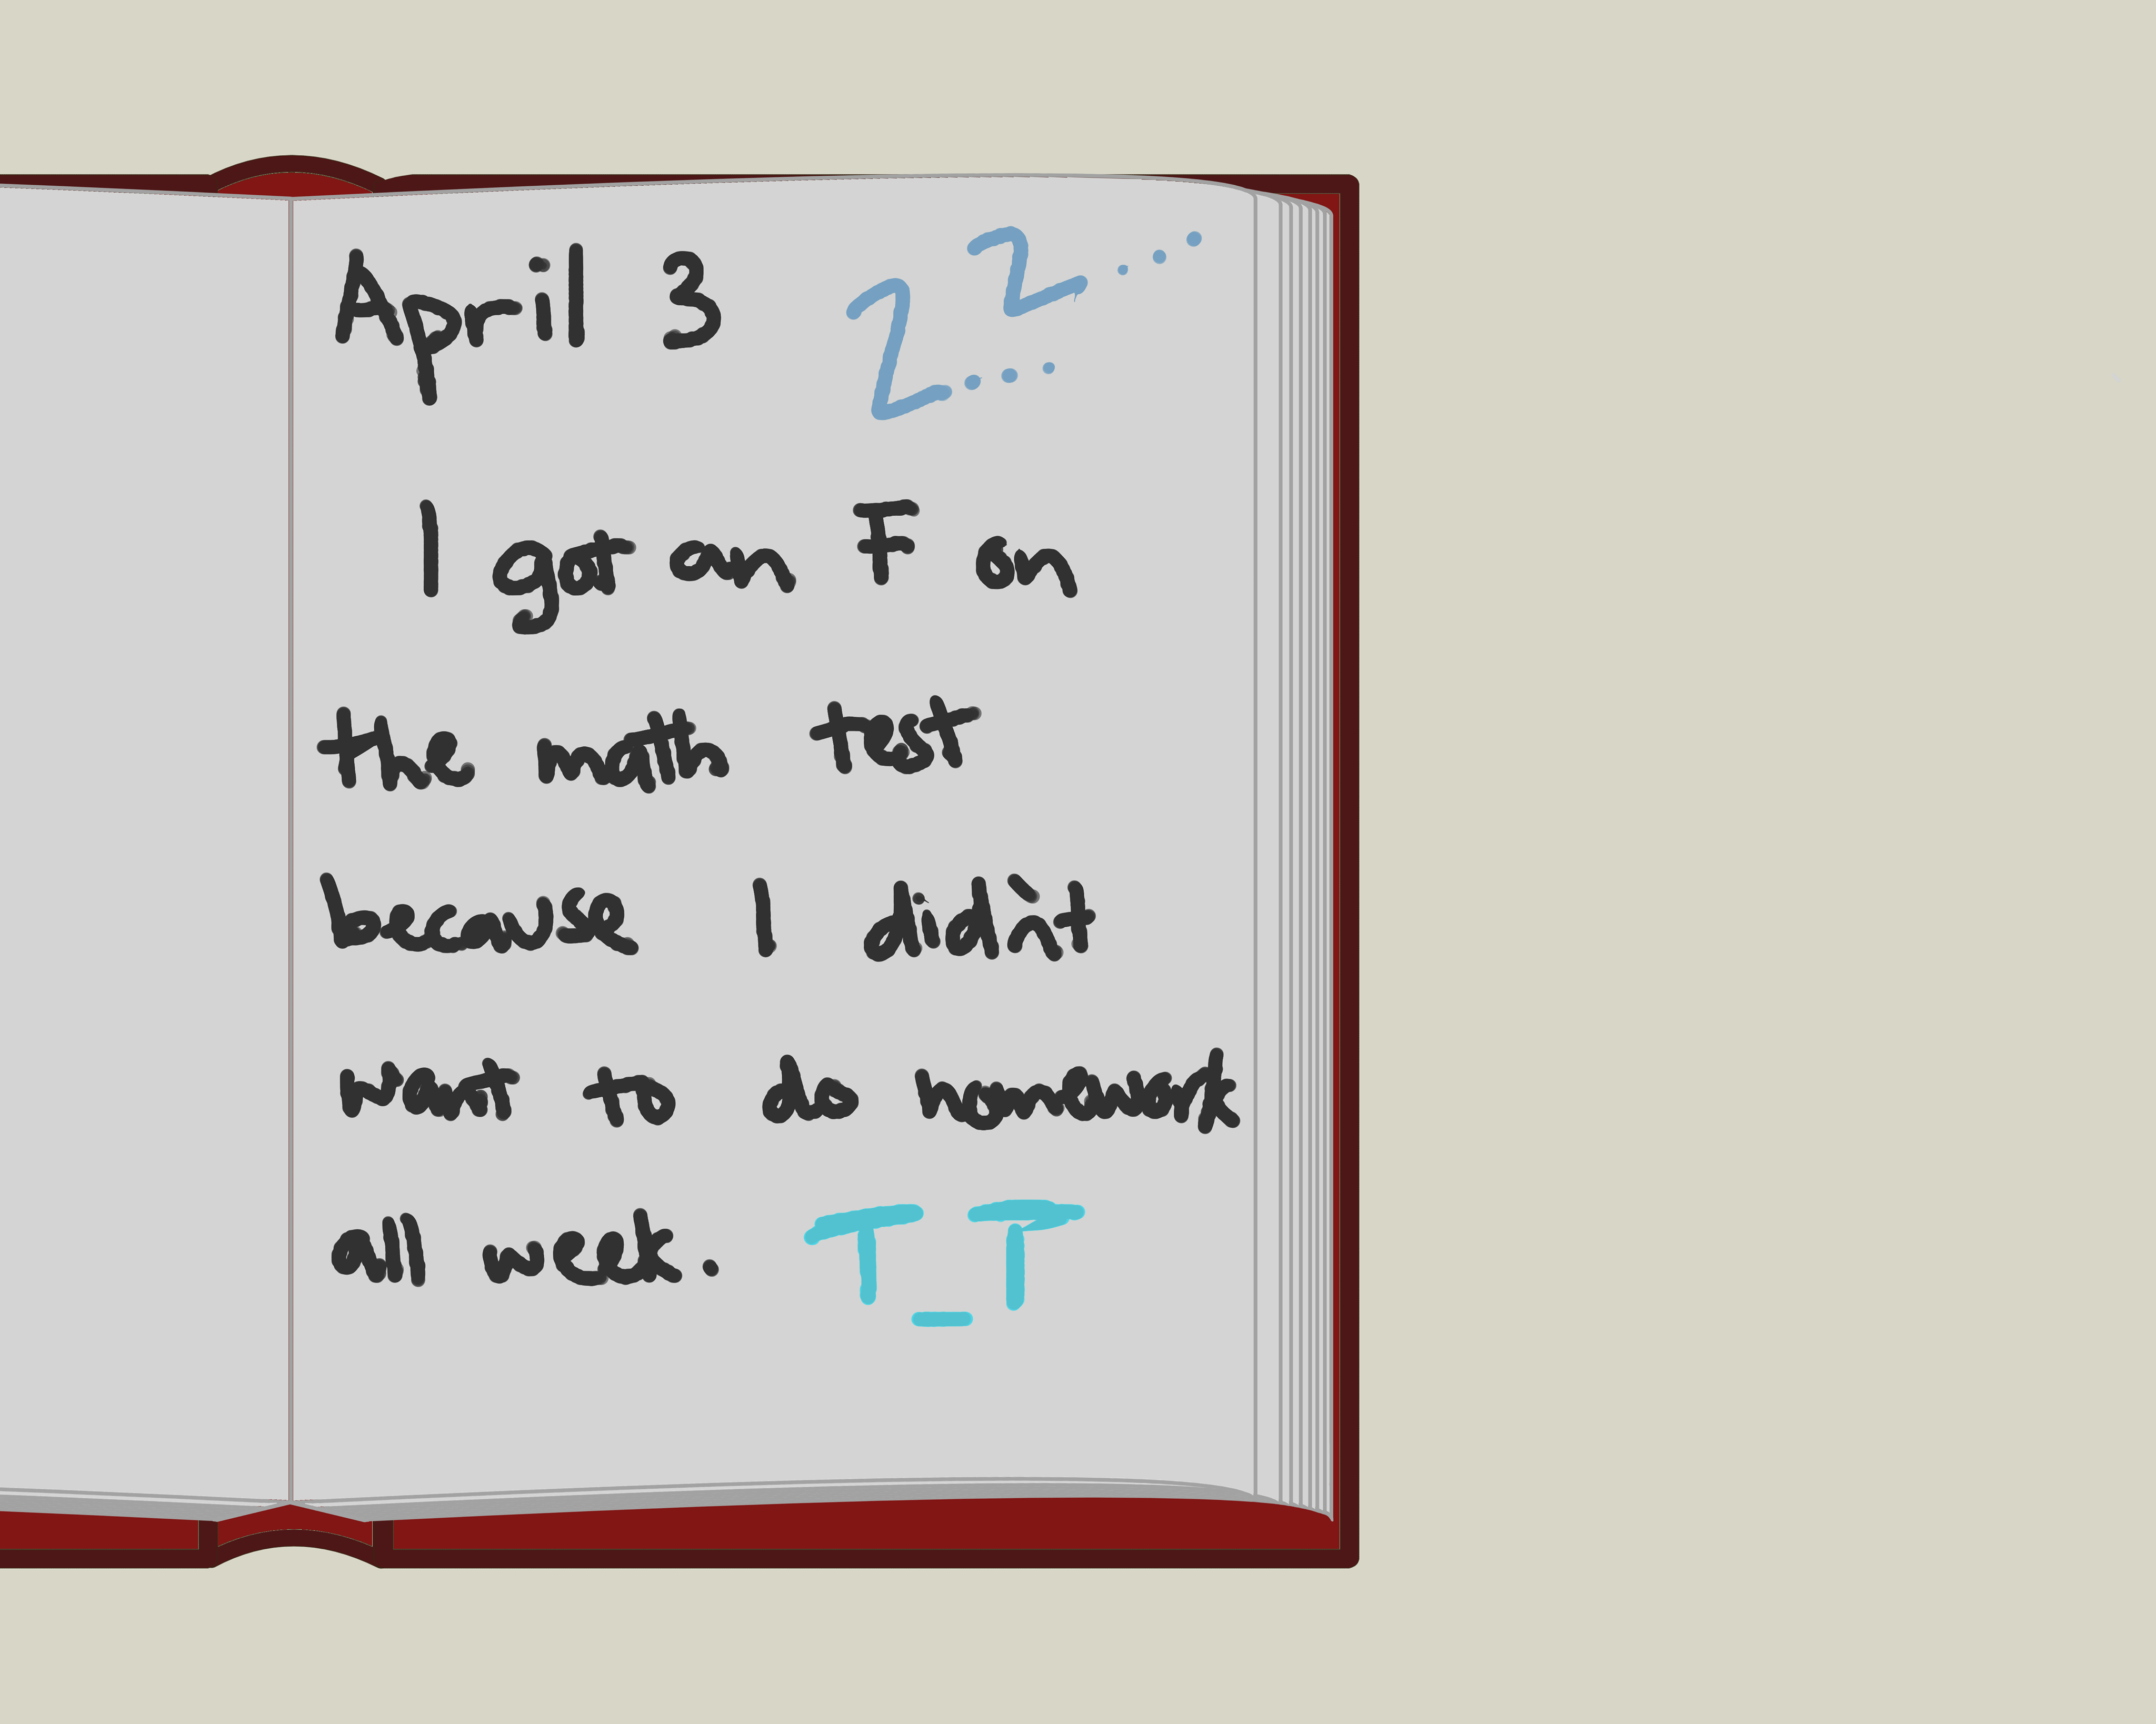 April 3 Z... Z...
I got an F on
the math test
because I didn't
want to do homework
all week. T_T